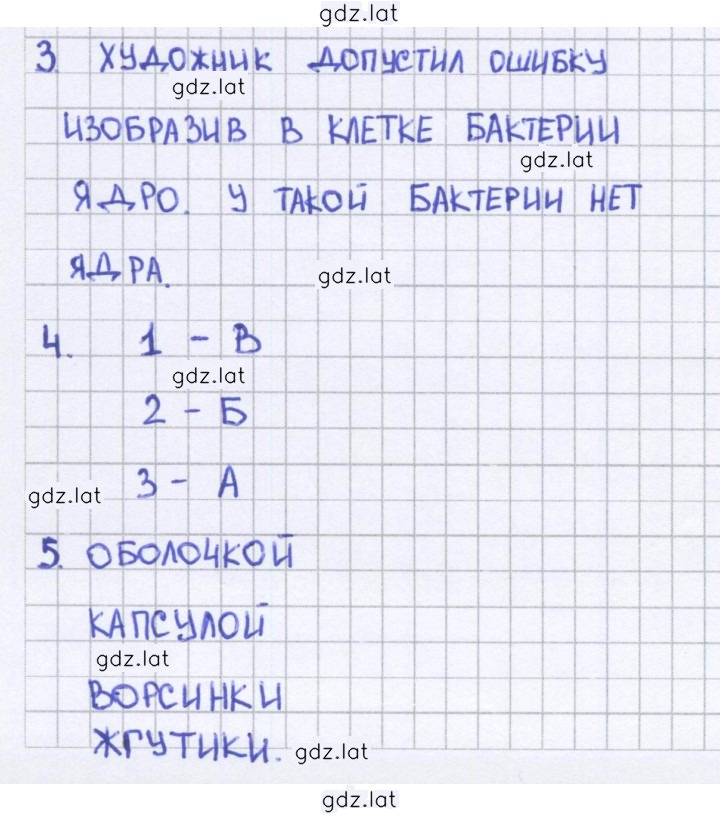 gdz.lat
3. ХУДОЖНИК ДОПУСТИЛ ОШИБКУ
gdz.lat
ИЗОБРАЗИВ В КЛЕТКЕ БАКТЕРИИ
gdz.lat
ЯДРО. У ТАКОЙ БАКТЕРИИ НЕТ
ЯДРА.
gdz.lat
4. 1 - В
gdz.lat
2 - Б
3 - А
gdz.lat
5. ОБОЛОЧКОЙ
КАПСУЛОЙ
gdz.lat
ВОРСИНКИ
ЖГУТИКИ.
gdz.lat
gdz.lat